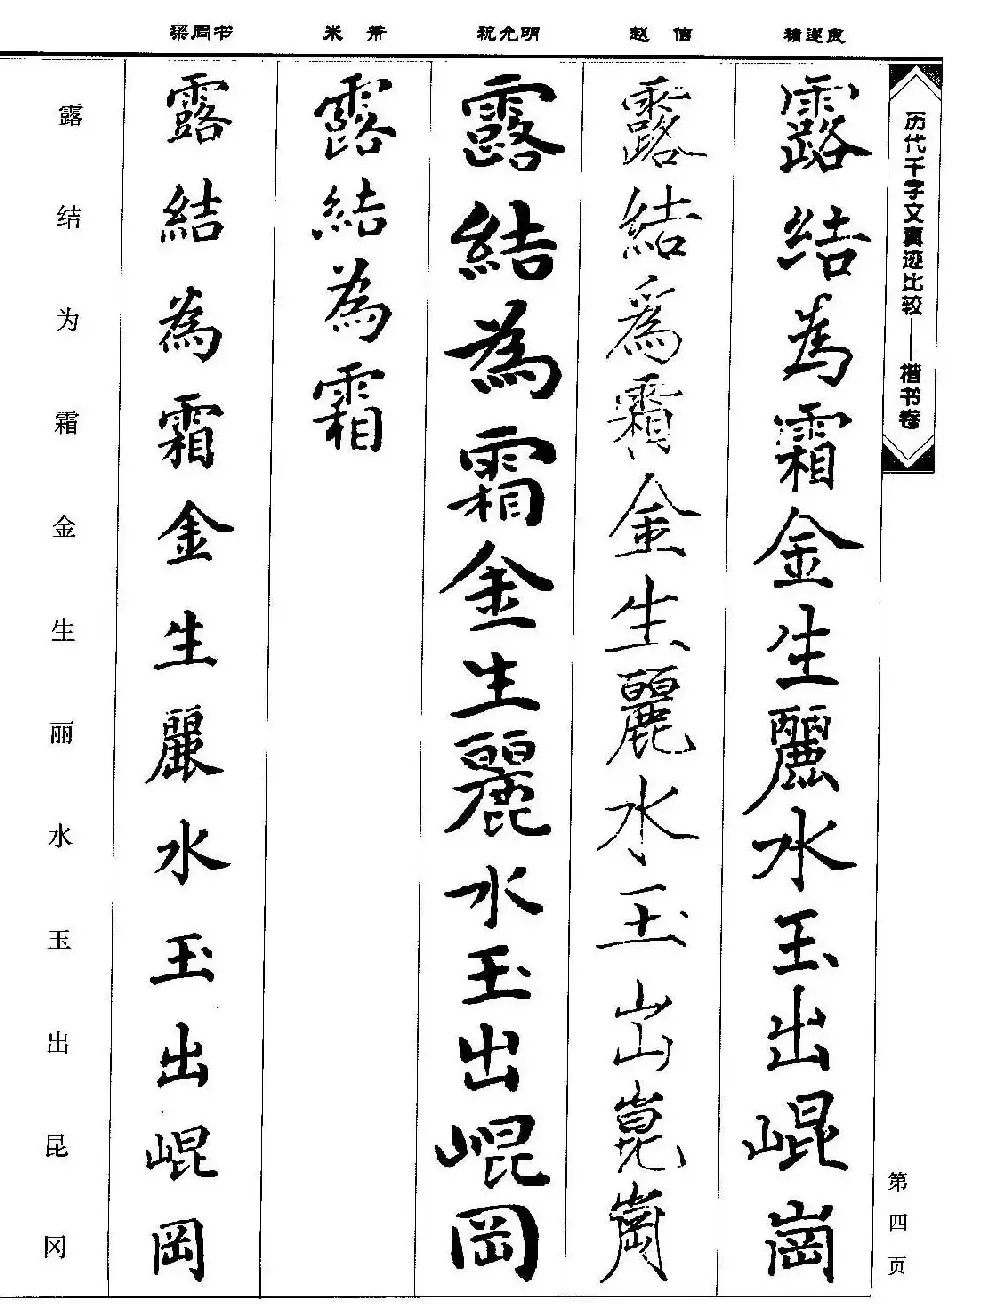 历代千字文真迹比较——楷书卷
第四页
褚遂良
露結為霜金生麗水玉出崐崗
赵佶
露結為霜金生麗水玉出崑崗
祝允明
露結為霜金生麗水玉出崐岡
米芾
露結為霜
梁同书
露結為霜金生麗水玉出崐岡
露结为霜金生丽水玉出昆冈